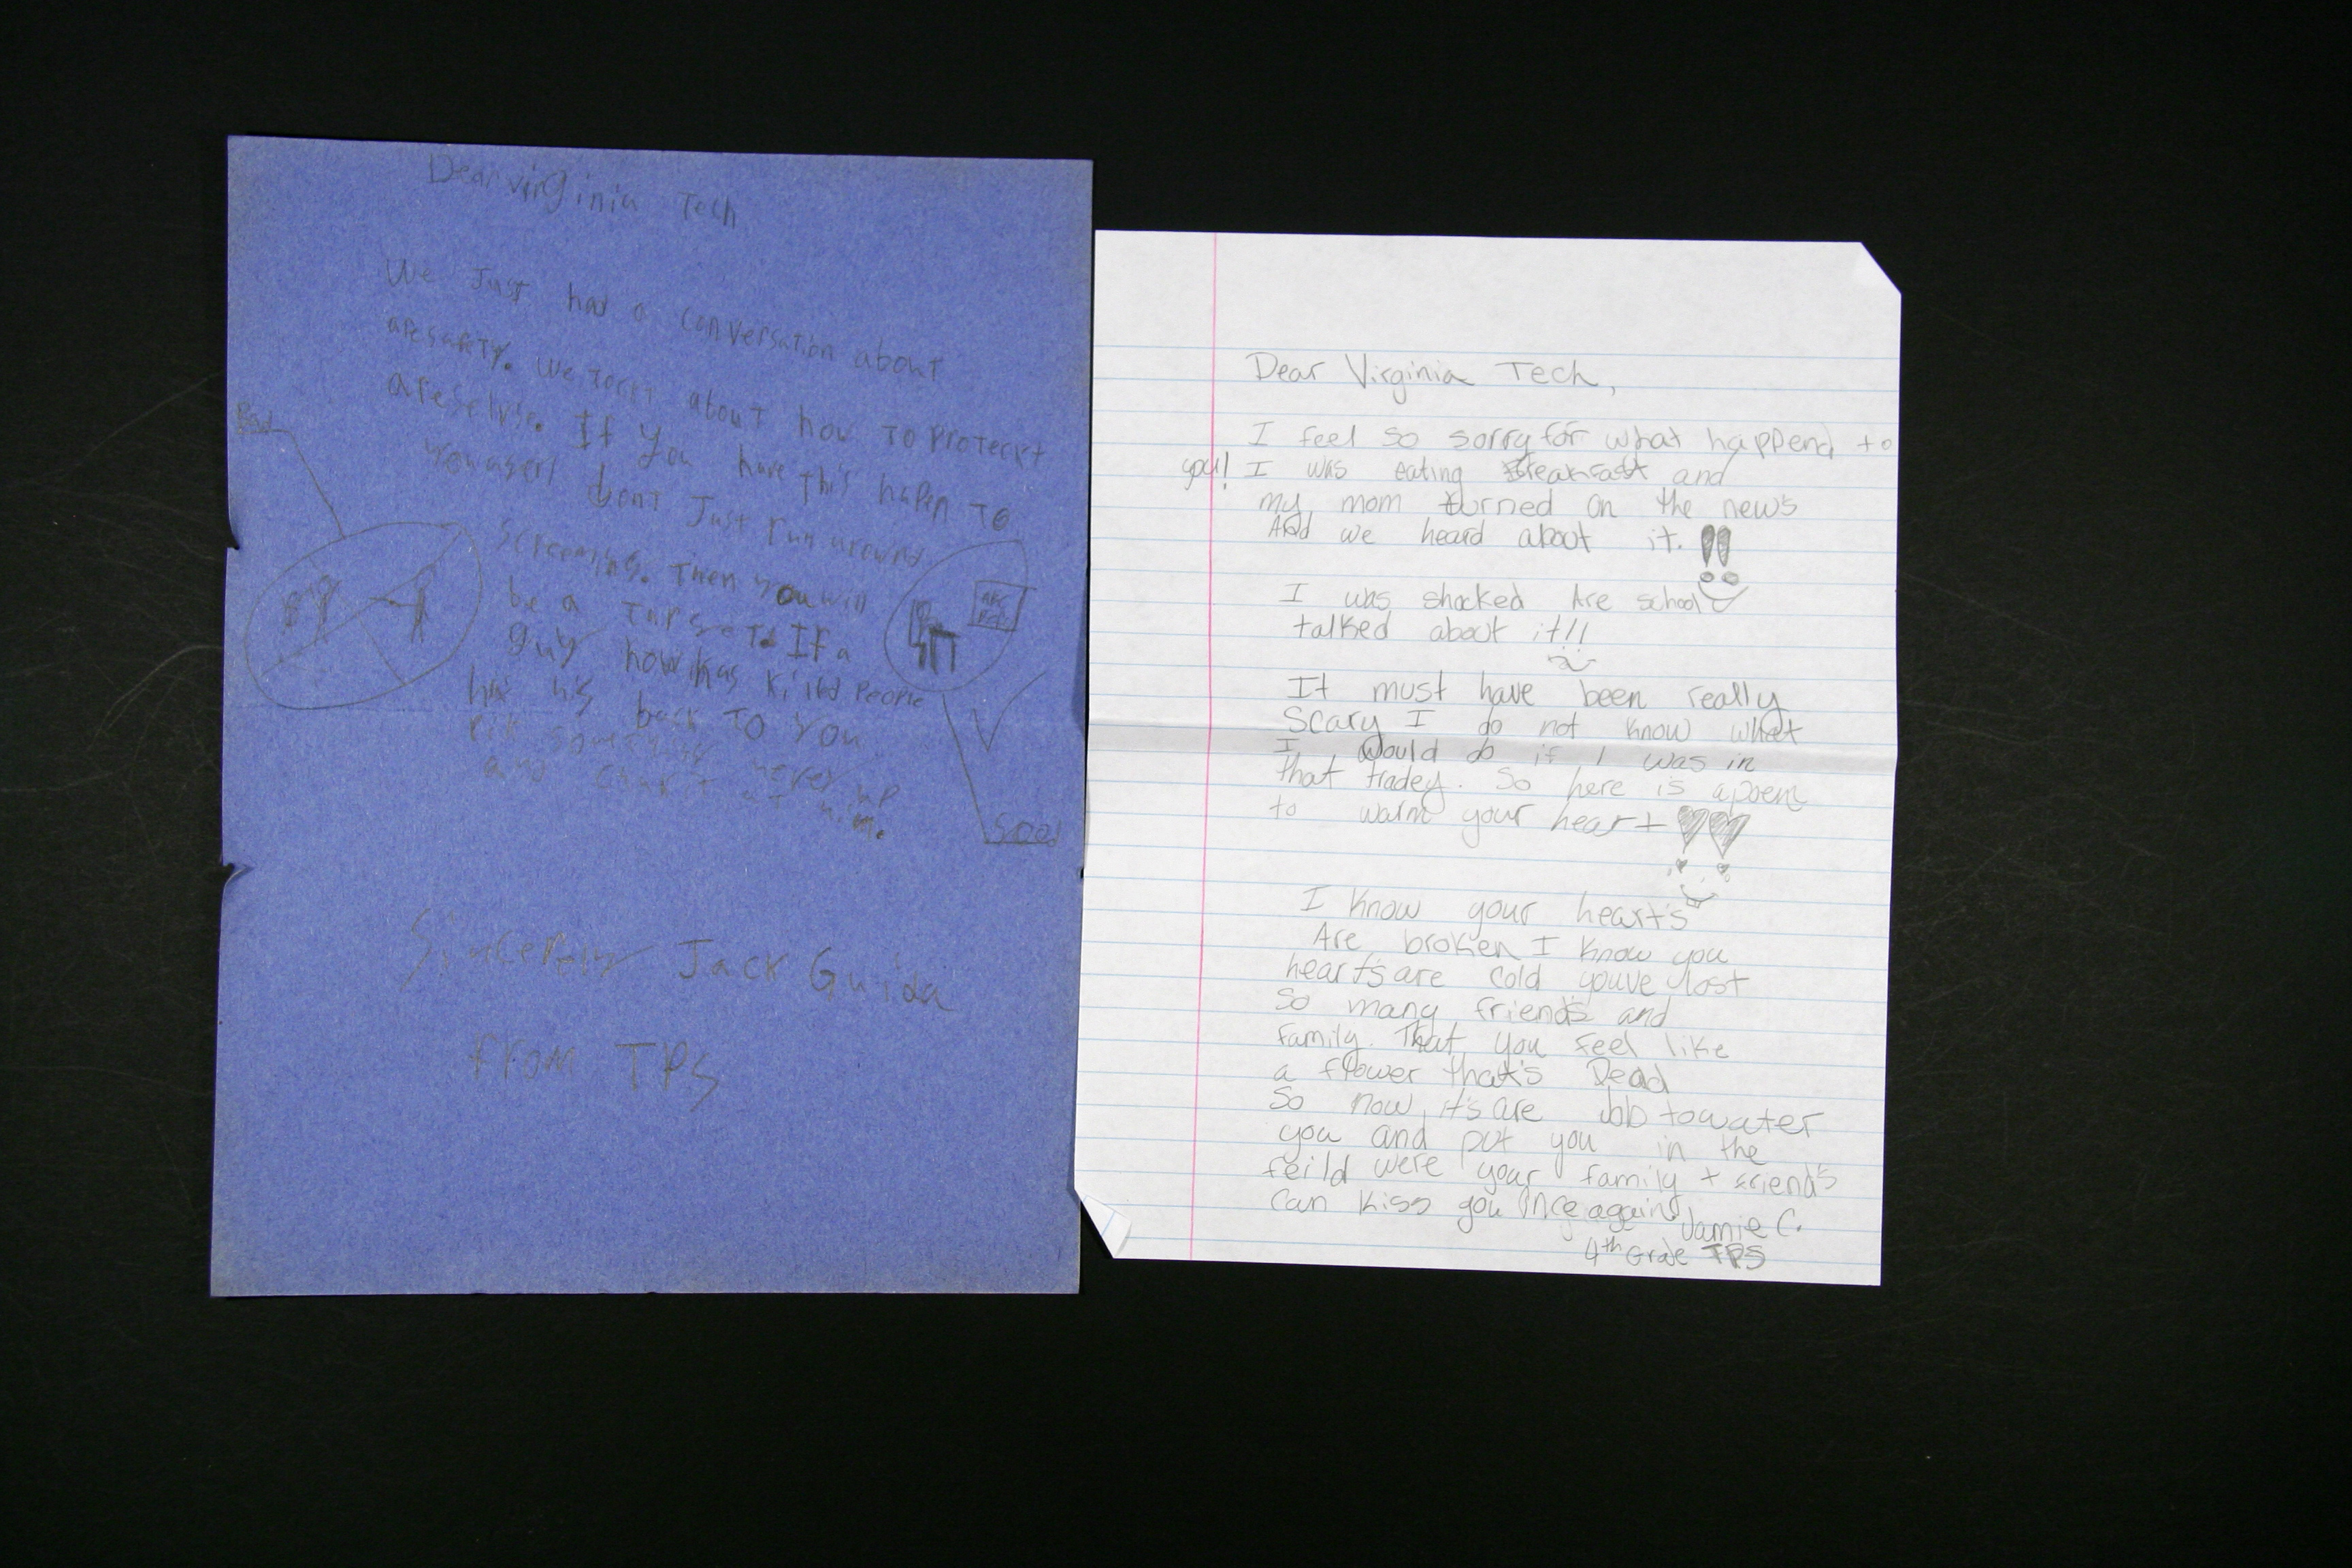 Dear virginia Tech
We Just had a conversation about
aresafty. We torkt about how To Proteckt
areselvse. If you have this hapen To
dont Just run arownd
screaming. Then you will
be a If a
guy how has killd People
has his back To You
Bad
Good
Sincerely Jack Guida
From TPS
Dear Virginia Tech,
I feel so sorry for what happend to
you! I was eating Breakfast and
my mom turned on the news
And we heard about it.!!
I was shocked Are school
talked about it!!
It must have been really
Scary I do not know what
I would do if I was in
that tradey. So here is a poem
to warm your heart
I know your heart's
Are broken I know you
heart's are cold youve lost
so many friend's and
family. That you feel like
a flower that's Dead
So now it's are Job to water
you and put you in the
feild were your family + friend's
can kiss you once again
Jamie C.
4th Grade TPS